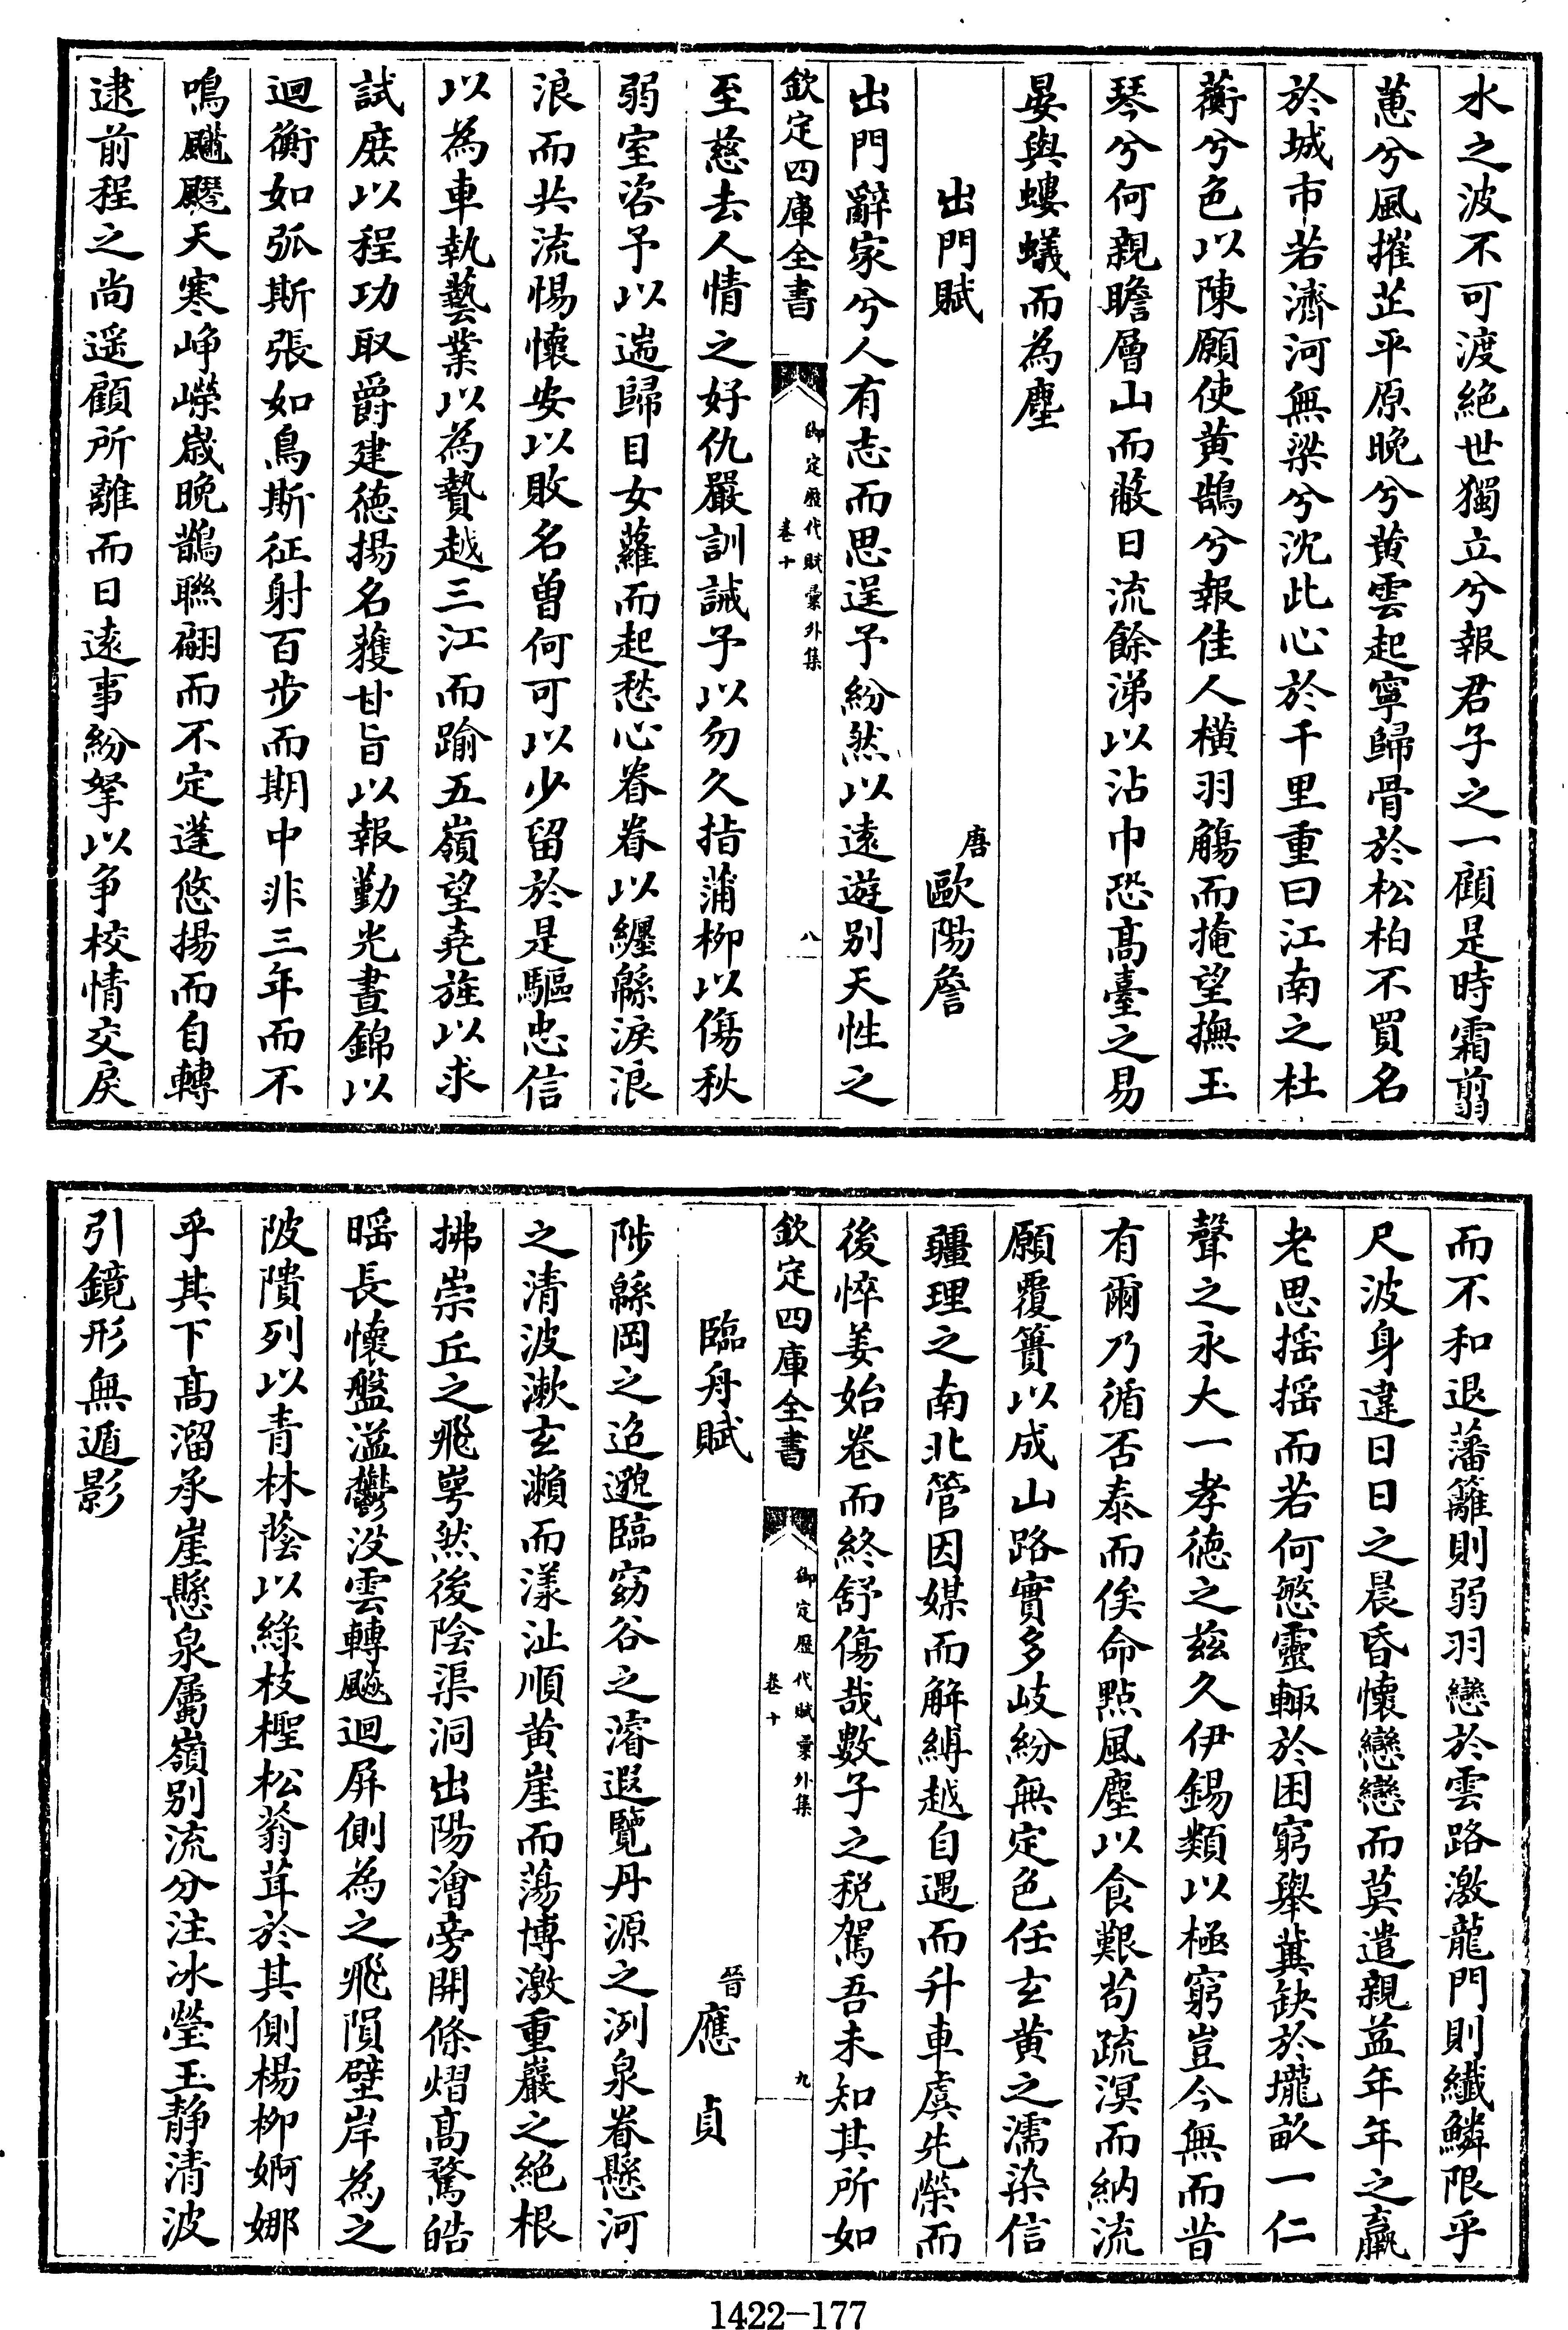 水之波不可渡絶世獨立兮報君子之一顧是時霜翦
蕙兮風摧芷平原晚兮黄雲起寧歸骨於松柏不買名
於城市若濟河無梁兮沈此心於千里重曰江南之杜
蘅兮色以陳願使黄鵠兮報佳人橫羽觴而掩望撫玉
琴兮何親瞻層山而蔽日流餘涕以沾巾恐髙臺之易
晏與螻蟻而為塵
出門賦
唐歐陽詹
出門辭家兮人有志而思逞予紛然以遠遊别天性之
欽定四庫全書
御定歷代賦彚外集
卷十
八
至慈去人情之好仇嚴訓誡予以勿久指蒲柳以傷秋
弱室咨予以遄歸目女蘿而起愁心眷眷以纒緜淚浪
浪而共流惕懷安以敗名曽何可以少留於是驅忠信
以為車執藝業以為贄越三江而踰五嶺望堯旌以求
試庶以程功取爵建德揚名獲甘旨以報勤光晝錦以
迴衡如弧斯張如鳥斯征射百步而期中非三年而不
鳴飈飂天寒崢嶸歲晚鵲聯翩而不定蓬悠揚而自轉
逮前程之尚遥顧所離而日遠事紛拏以争校情交戾
而不和退藩籬則弱羽戀於雲路激龍門則纎鱗限乎
尺波身違日日之晨昏懷戀戀而莫遣親益年年之羸
老思揺揺而若何慜靈輒於困窮舉冀缺於壠畝一仁
聲之永大一孝徳之兹久伊錫類以極窮豈今無而昔
有爾乃循否泰而俟命點風塵以食艱茍疏溟而納流
願覆簣以成山路實多岐紛無定色任玄黄之濡染信
疆理之南北管因媒而解縛越自遇而升車虞先榮而
後悴姜始卷而終舒傷哉數子之税駕吾未知其所如
欽定四庫全書
御定歷代賦彚外集
卷十
九
臨舟賦
晉應貞
陟緜岡之迢邈臨窈谷之濬遐覽丹源之洌泉眷懸河
之清波漱玄瀨而漾沚順黄崖而蕩博激重巖之絶根
拂崇丘之飛崿然後陰渠洞出陽澮旁開倏熠髙騖皓
曜長懷盤溢鬱没雲轉飈迴屏側為之飛隕壁岸為之
陂隤列以青林蔭以緑枝檉松蓊茸於其側楊栁婀娜
乎其下髙溜承崖懸泉屬嶺别流分注冰瑩玉静清波
引鏡形無遁影
1422-177